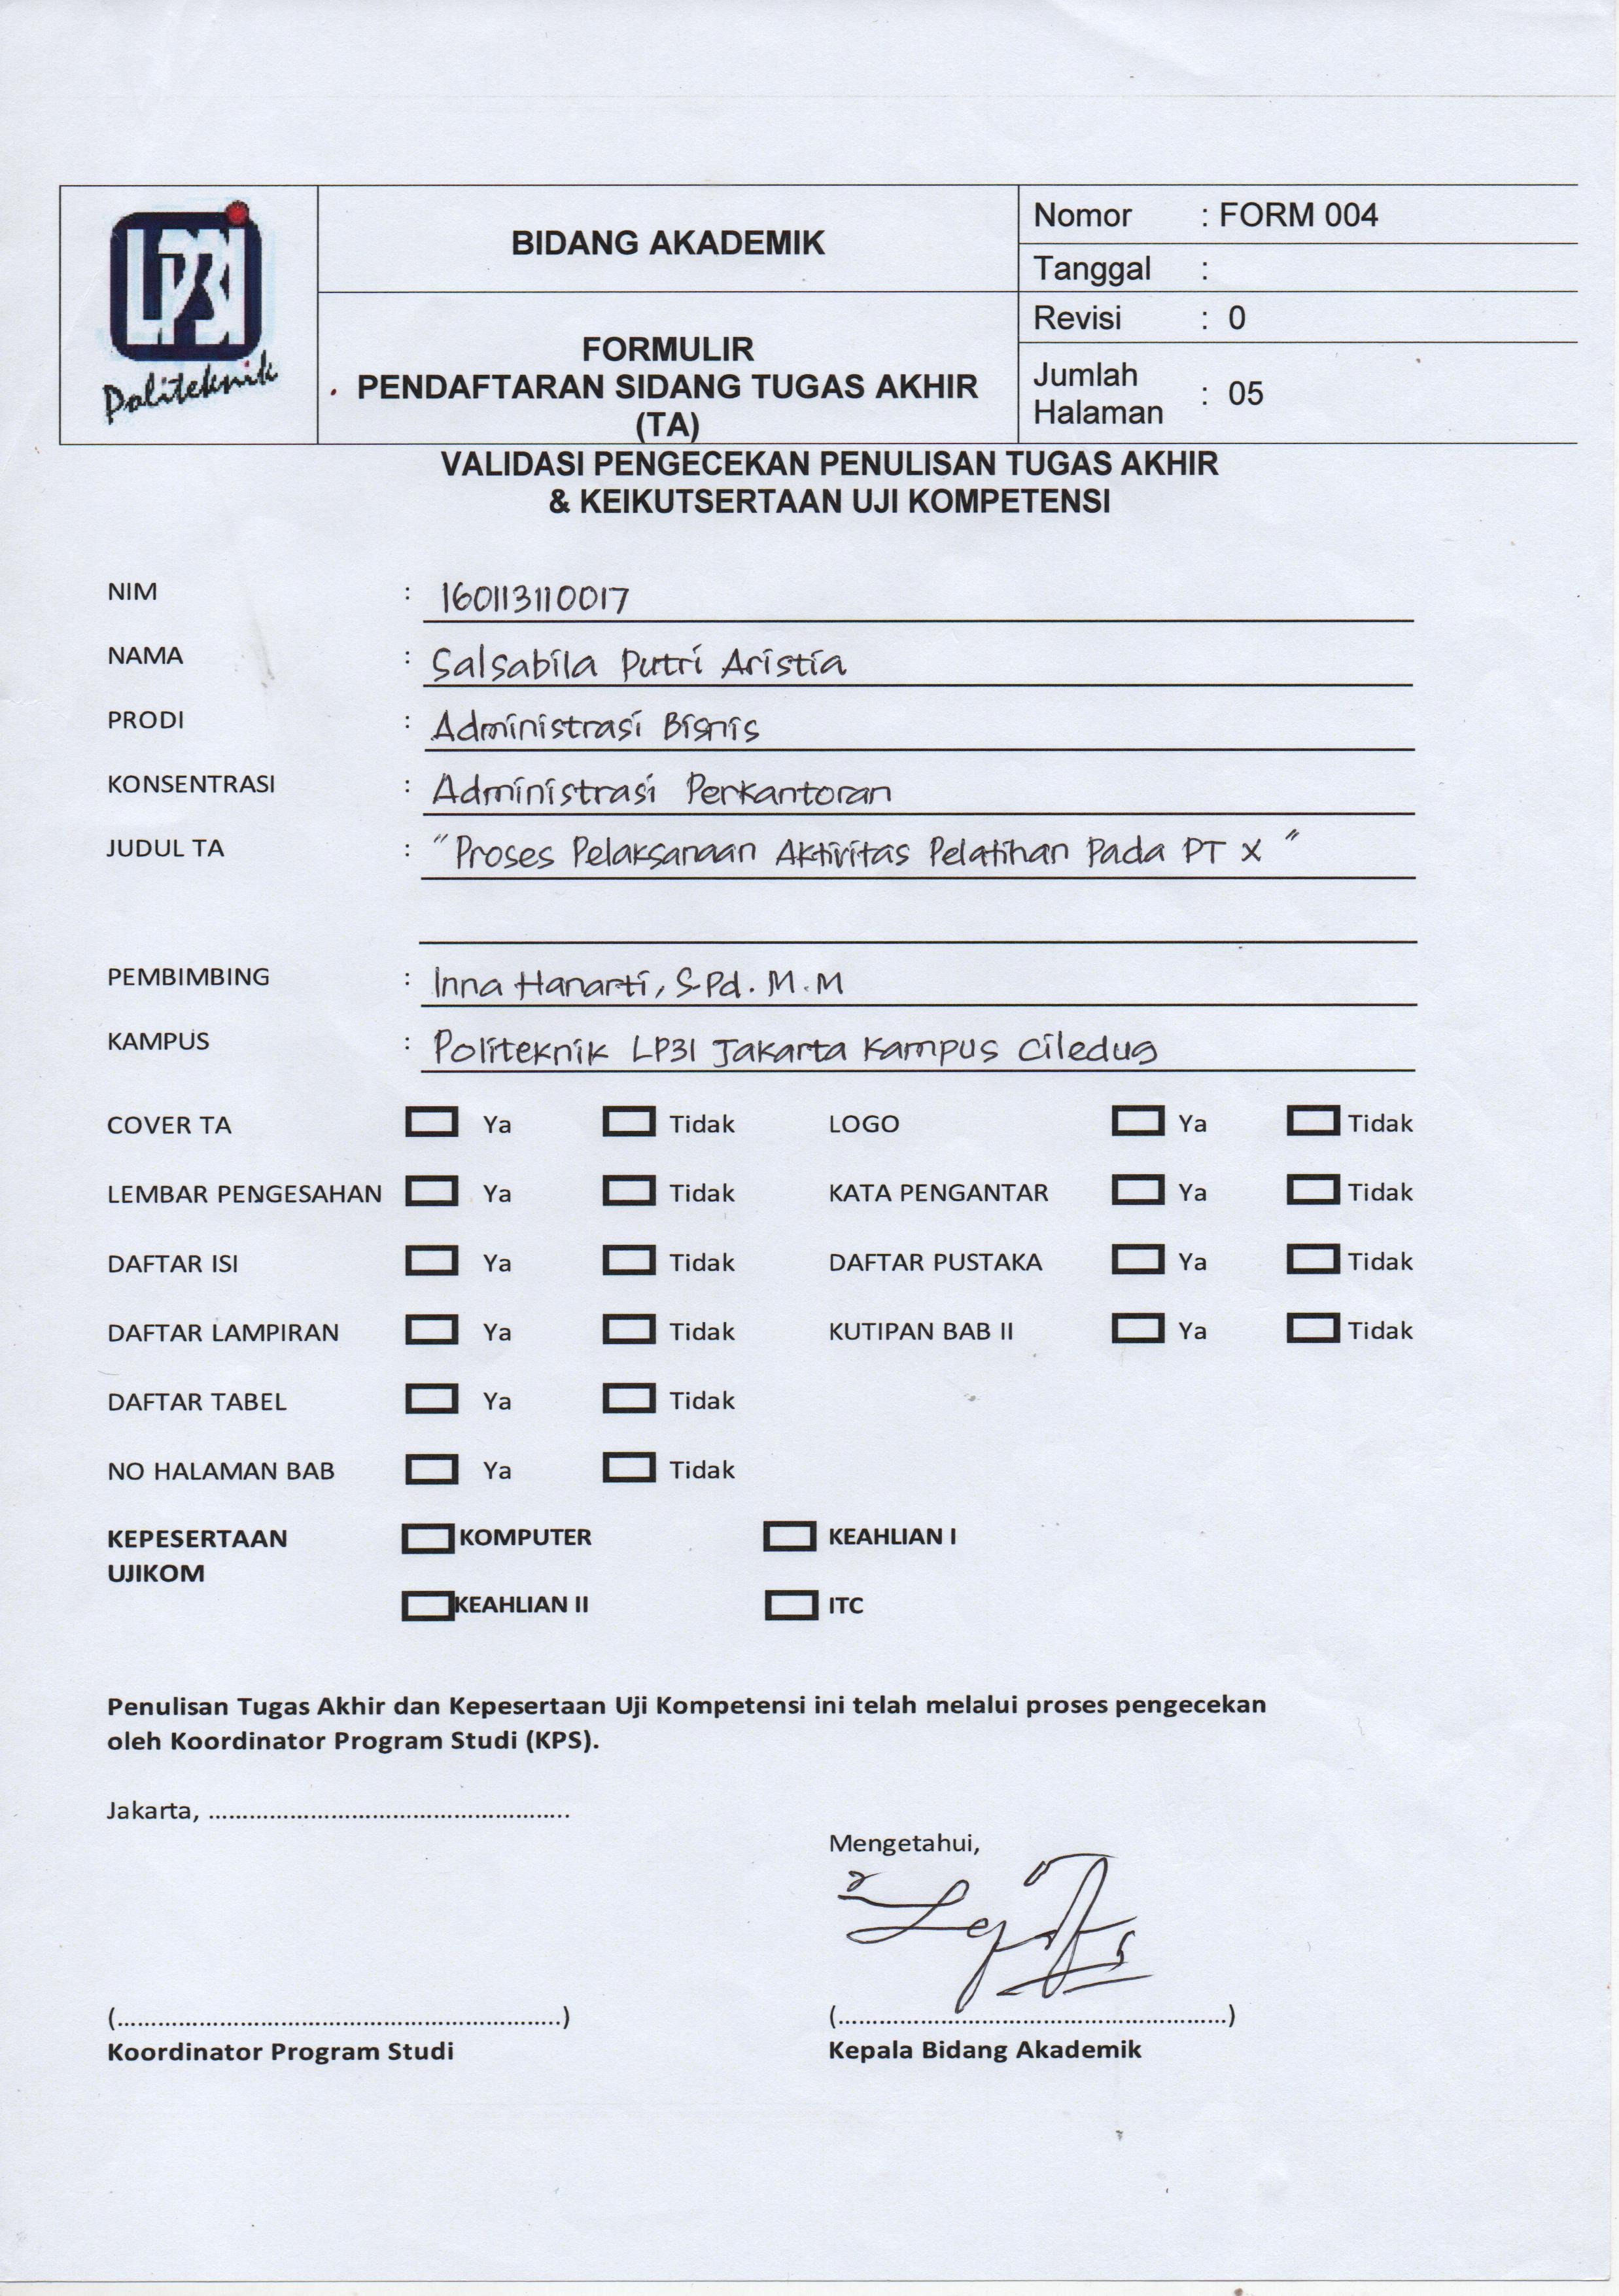 LP3I
Politeknik
BIDANG AKADEMIK
FORMULIR
PENDAFTARAN SIDANG TUGAS AKHIR
(TA)
Nomor : FORM 004
Tanggal :
Revisi : 0
Jumlah
Halaman : 05
VALIDASI PENGECEKAN PENULISAN TUGAS AKHIR
& KEIKUTSERTAAN UJI KOMPETENSI
NIM : 160113110017
NAMA : Salsabila Putri Aristia
PRODI : Administrasi Bisnis
KONSENTRASI : Administrasi Perkantoran
JUDUL TA : "Proses Pelaksanaan Aktivitas Pelatihan Pada PT X"
PEMBIMBING : Inna Hanarti, S.Pd. M.M
KAMPUS : Politeknik LP3I Jakarta Kampus Ciledug
COVER TA Ya Tidak LOGO Ya Tidak
LEMBAR PENGESAHAN Ya Tidak KATA PENGANTAR Ya Tidak
DAFTAR ISI Ya Tidak DAFTAR PUSTAKA Ya Tidak
DAFTAR LAMPIRAN Ya Tidak KUTIPAN BAB II Ya Tidak
DAFTAR TABEL Ya Tidak
NO HALAMAN BAB Ya Tidak
KEPESERTAAN KOMPUTER KEAHLIAN I
UJIKOM
KEAHLIAN II ITC
Penulisan Tugas Akhir dan Kepesertaan Uji Kompetensi ini telah melalui proses pengecekan
oleh Koordinator Program Studi (KPS).
Jakarta, ......................................................
Mengetahui,
(..................................................................) (..........................................................)
Koordinator Program Studi Kepala Bidang Akademik